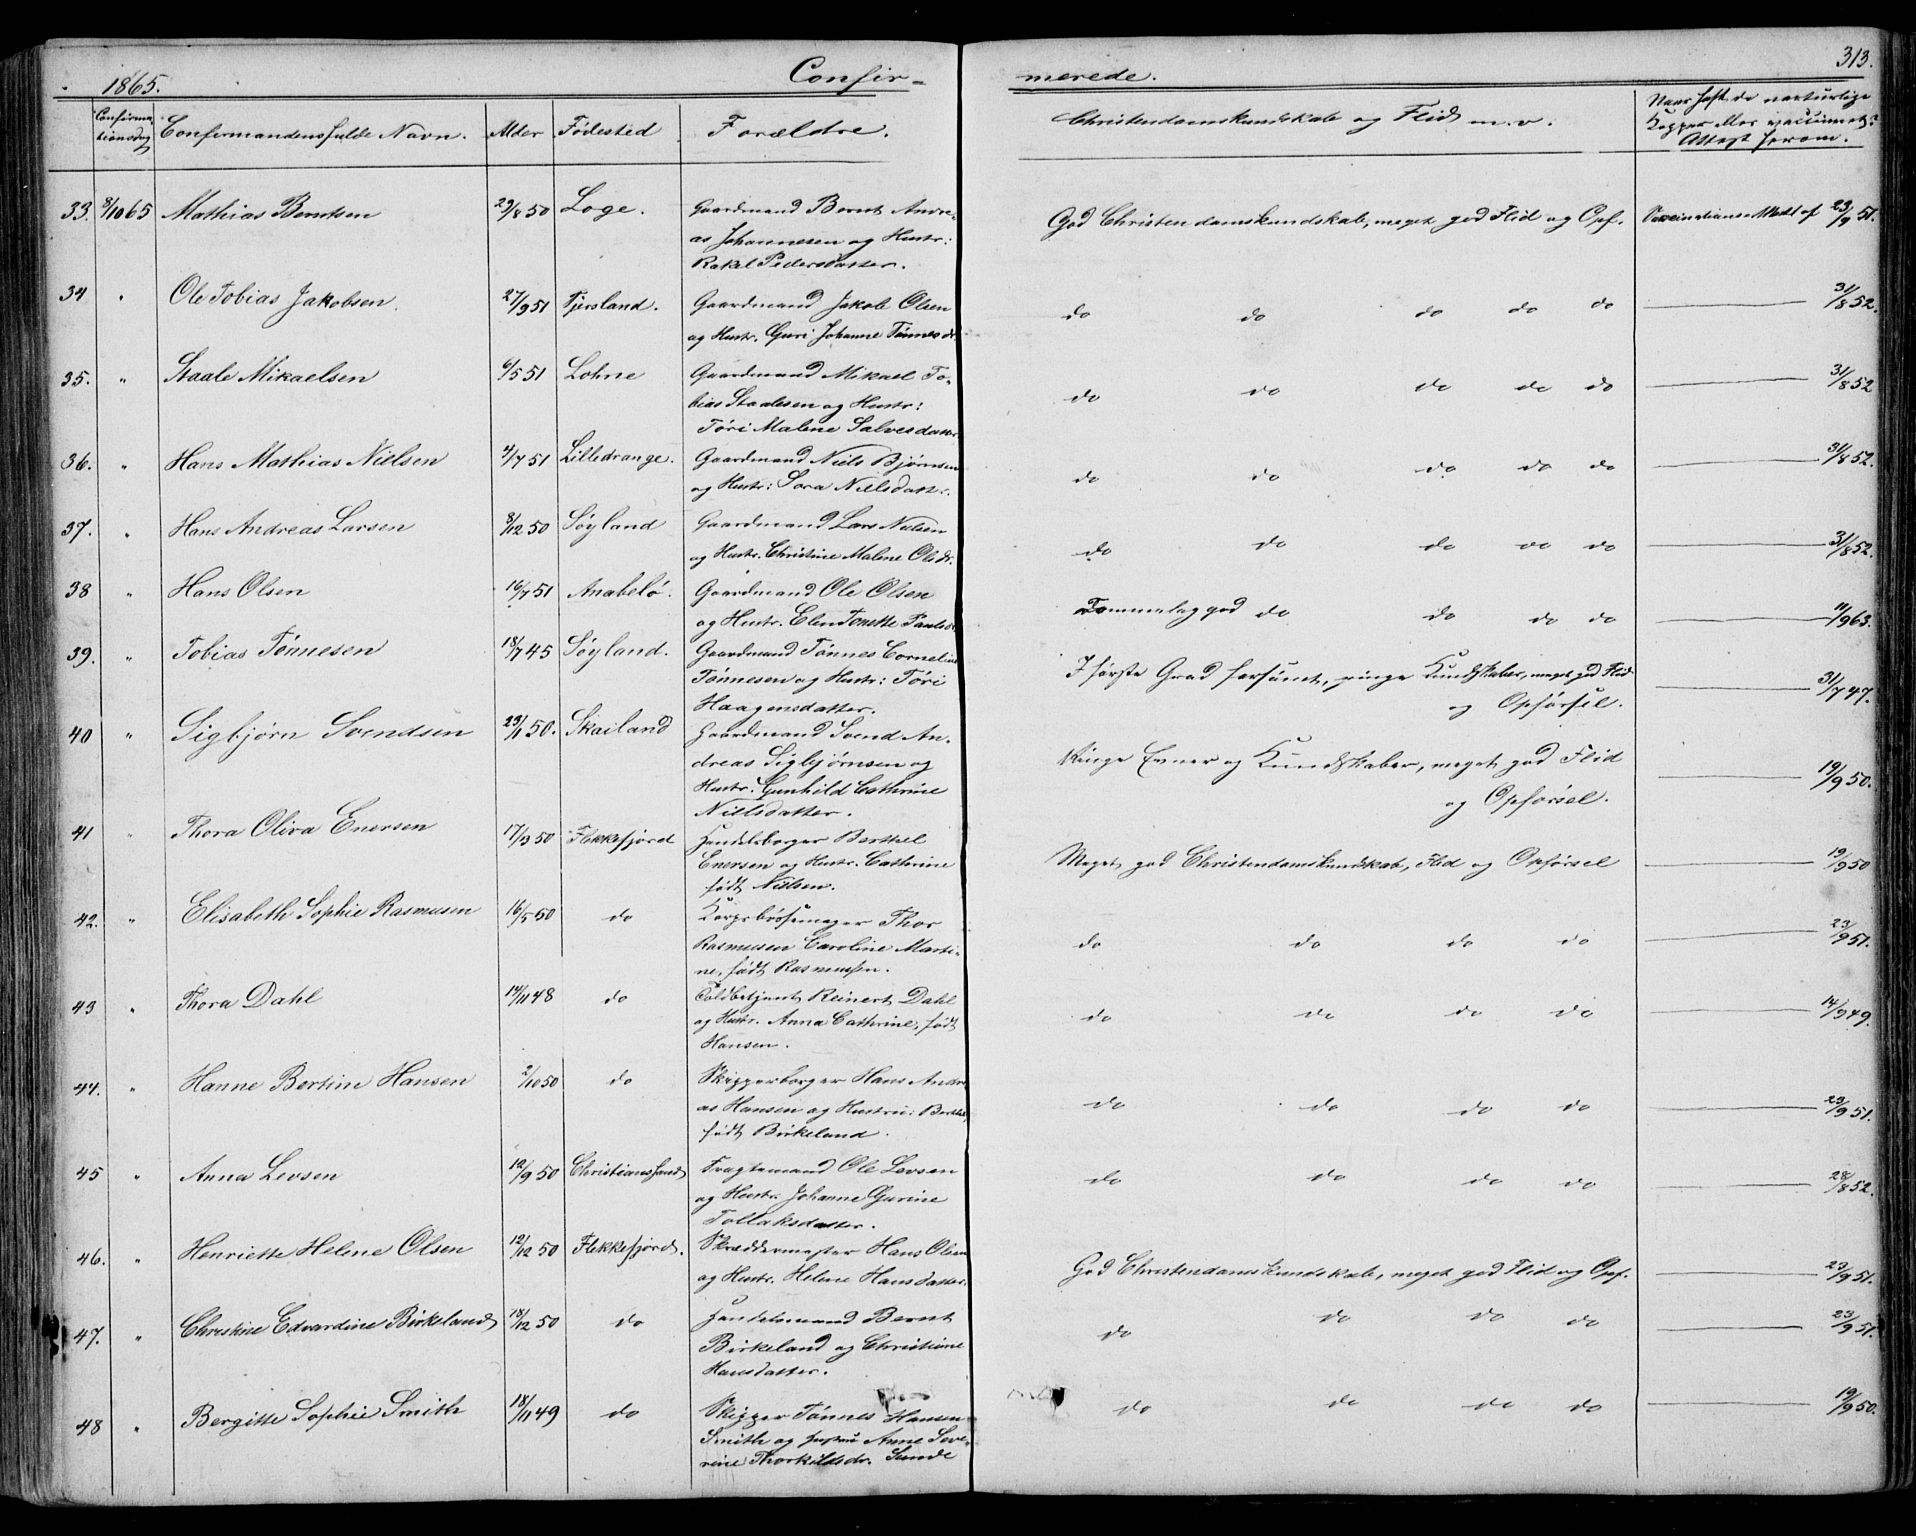 313.
1865. Confirmerede.
Confirmationsdag Confirmandens fulde Navn. Alder Fødested Forældre. Christendomskundskab og Flid m. v. Naar haft de naturlige
Kopper eller vaccineret?
Attest herom.
33. 8/10 65 Mathias Berntsen 29/8 50 Loge. Gaardmand Bernt Andre- God Christendomskundskab, meget god Flid og Opf. Vaccinations Attest af 23/9 51.
as Johannesen og Hustr:
Rakel Pedersdatter.
34 " Ole Tobias Jakobsen. 27/9 51 Fjersland. Gaardmand Jakob Olsen do do do do do 31/8 52.
og Hustr. Guri Johanne Tønnesdr.
35. " Staale Mikaelsen 6/5 51 Lohne Gaardmand Mikael To- do do do do do 31/8 52
bias Staalesen og Hustr:
Tøri Malene Salvesdatter
36. " Hans Mathias Nielsen 4/7 51 Lilledrange. Gaardmand Niels Bjørnsen do do do do do 31/8 52.
og Hustr: Sara Nielsdatter.
37. " Hans Andreas Larsen 8/12 50 Søyland Gaardmand Lars Nielsen do do do do do 31/8 52.
og Hustr. Christine Malene Olsdr.
38 " Hans Olsen 16/7 51 Anabelø. Gaardmand Ole Olsen Temmelig god do do do do 11/9 63.
og Hustr. Elen Tonette Paulsdr
39. " Tobias Tønnesen 18/7 45 Søyland. Gaardmand Tønnes Cornelius I første Grad forsømt, ringe Kundskaber, meget god Flid 31/7 47.
Tønnesen og Hustr: Tøri og Opførsel.
Haagensdatter.
40 " Sigbjørn Svendsen 23/11 50. Skailand Gaardmand Svend An- Ringe Evner og Kundskaber, meget god Flid 19/9 50.
dreas Sigbjørnsen og og Opførsel.
Hustr. Gunhild Cathrine
Nielsdatter.
41 " Thora Oliva Enersen 17/3 50 Flekkefjord Handelsborger Berthel Meget god Christendomskundskab, Flid og Opførsel 19/9 50
Enersen og Hustr. Cathrine
født Nielsen.
42. " Elisabeth Sophie Rasmusen 16/5 50 do Korpsbøssemager Thor do do do do 23/9 51.
Rasmusen Caroline Marti-
ne, født Rasmussen.
43 " Thora Dahl 14/11 48 do Toldbetjent Reinert Dahl do do do do 14/9 49.
og Hustr. Anna Cathrine, født
Hansen.
44. " Hanne Bertine Hansen 2/10 50 do Skipperborger Hans Andre do do do do 23/9 51.
as Hansen og Hustru: Berthe,
født Birkeland.
45 " Anna Levsen 12/9 50 Christianssand Fragtemand Ole Levsen do do do do 28/8 52.
og Hustr. Johanne Gurine
Tollaksdatter.
46. " Henriette Helene Olsen 12/12 50 Flekkefjord. Skræddermester Hans Olsen God Christendomskundskab, meget god Flid og Opf. 23/9 51.
og Hustr. Helene Hansdatter.
47. " Christine Edvardine Birkeland 18/12 50 do Handelsmand Bernt do do do do 23/9 51.
Birkeland og Christiane
Hansdatter.
48 " Bergitte Sophie Smith 18/11 49 do Skipper Tønnes Hansen do do do do 19/9 50.
Smith og Hustru Anne Seve-
rine Thorkildsdr. Sunde